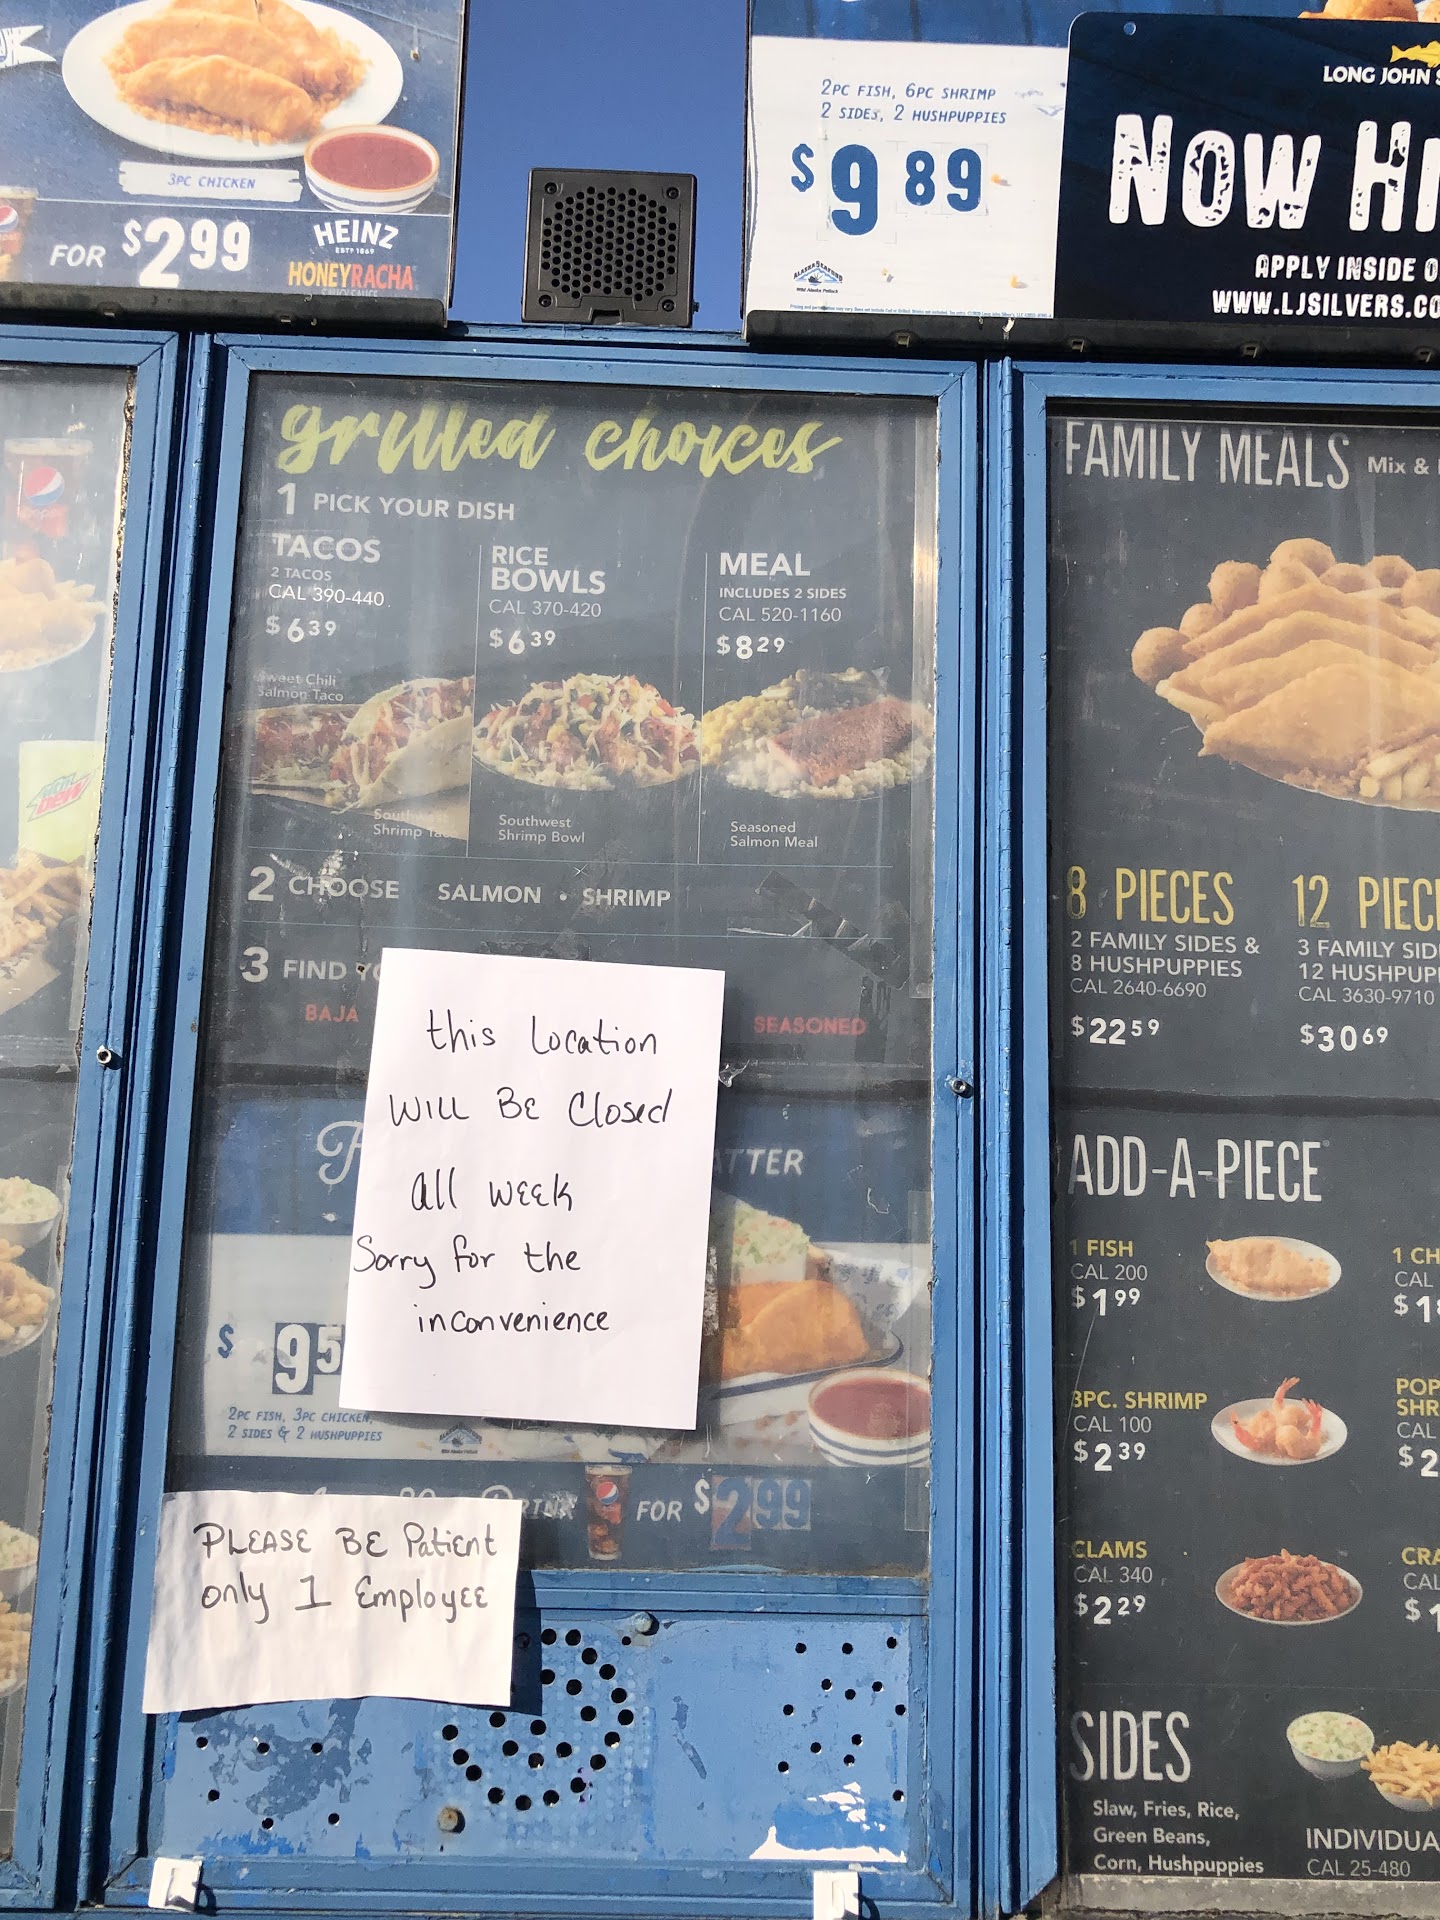 3PC CHICKEN
FOR $2.99
HEINZ
ESTD 1869
HONEYRACHA
2PC FISH, 6PC SHRIMP
2 SIDES, 2 HUSHPUPPIES
$9 89
ALASKA SEAFOOD
Wild Alaska Pollock
LONG JOHN
NOW HI
APPLY INSIDE O
WWW.LJSILVERS.CO
pepsi
mtn dew
grilled choices
1 PICK YOUR DISH
TACOS
2 TACOS
CAL 390-440
$6 39
RICE
BOWLS
CAL 370-420
$6 39
MEAL
INCLUDES 2 SIDES
CAL 520-1160
$8 29
Sweet Chili
Salmon Taco
Southwest
Shrimp Taco
Southwest
Shrimp Bowl
Seasoned
Salmon Meal
2 CHOOSE SALMON • SHRIMP
3 FIND YO
BAJA
SEASONED
this location
WILL BE Closed
all week
Sorry for the
inconvenience
ATTER
$ 95
2PC FISH, 3PC CHICKEN,
2 SIDES & 2 HUSHPUPPIES
DRINK FOR $2 99
PLEASE BE Patient
only 1 Employee
FAMILY MEALS Mix &
8 PIECES
2 FAMILY SIDES &
8 HUSHPUPPIES
CAL 2640-6690
$22 59
12 PIEC
3 FAMILY SID
12 HUSHPUP
CAL 3630-9710
$30 69
ADD-A-PIECE
1 FISH
CAL 200
$1 99
1 CH
CAL
$1
3PC. SHRIMP
CAL 100
$2 39
POP
SHR
CAL
$2
CLAMS
CAL 340
$2 29
CRA
CAL
$1
SIDES
Slaw, Fries, Rice,
Green Beans,
Corn, Hushpuppies
INDIVIDUA
CAL 25-480